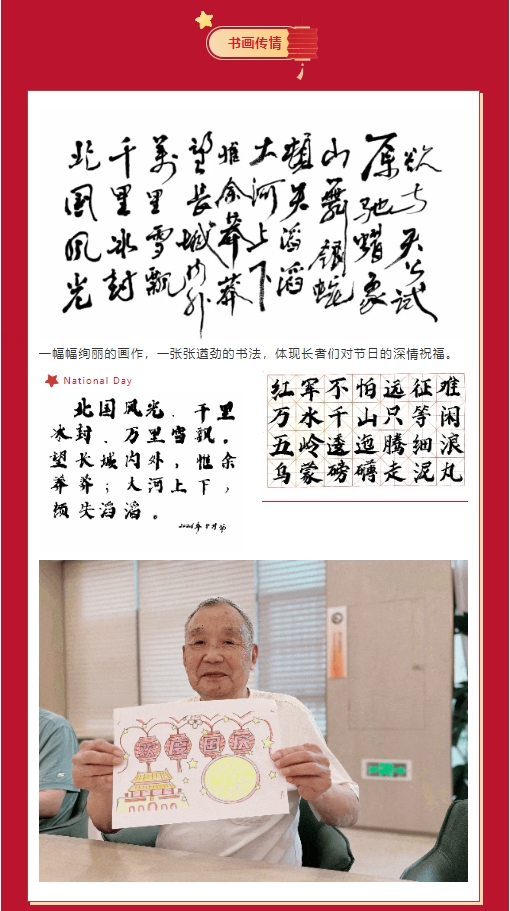 书画传情
北国风光
千里冰封
萬里雪飘
望长城内外
惟余莽莽
大河上下
顿失滔滔
山舞銀蛇
原驰蜡象
欲与天公试
一幅幅绚丽的画作，一张张遒劲的书法，体现长者们对节日的深情祝福。
National Day
北国风光、千里
冰封、万里雪飘。
望长城内外，惟余
莽莽；大河上下，
顿失滔滔。
红军不怕远征难
万水千山只等闲
五岭逶迤腾细浪
乌蒙磅礴走泥丸